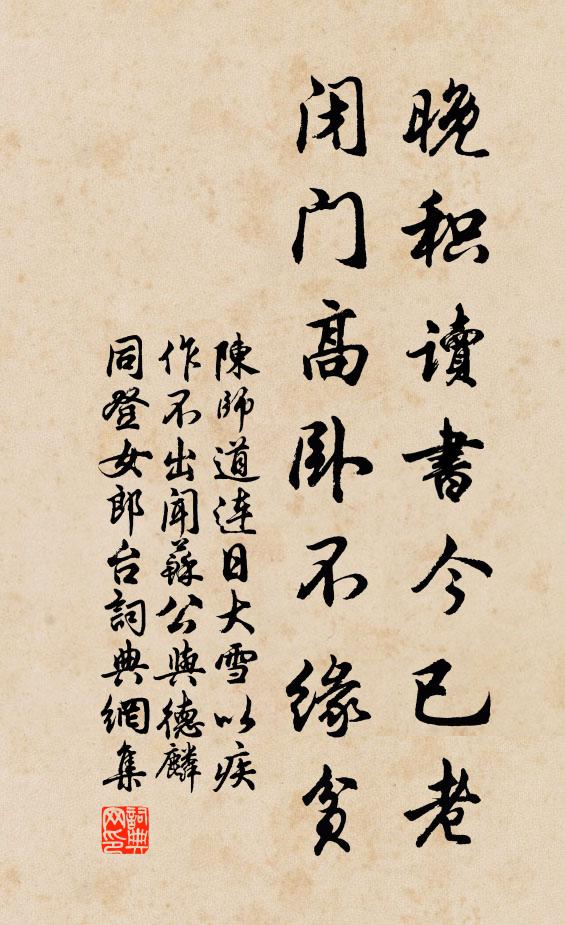 晚积读書今已老
闭门高卧不缘贫
陳師道連日大雪以疾
作不出闻蘇公與德麟
同登女郎台詞典網集
詞典
网印